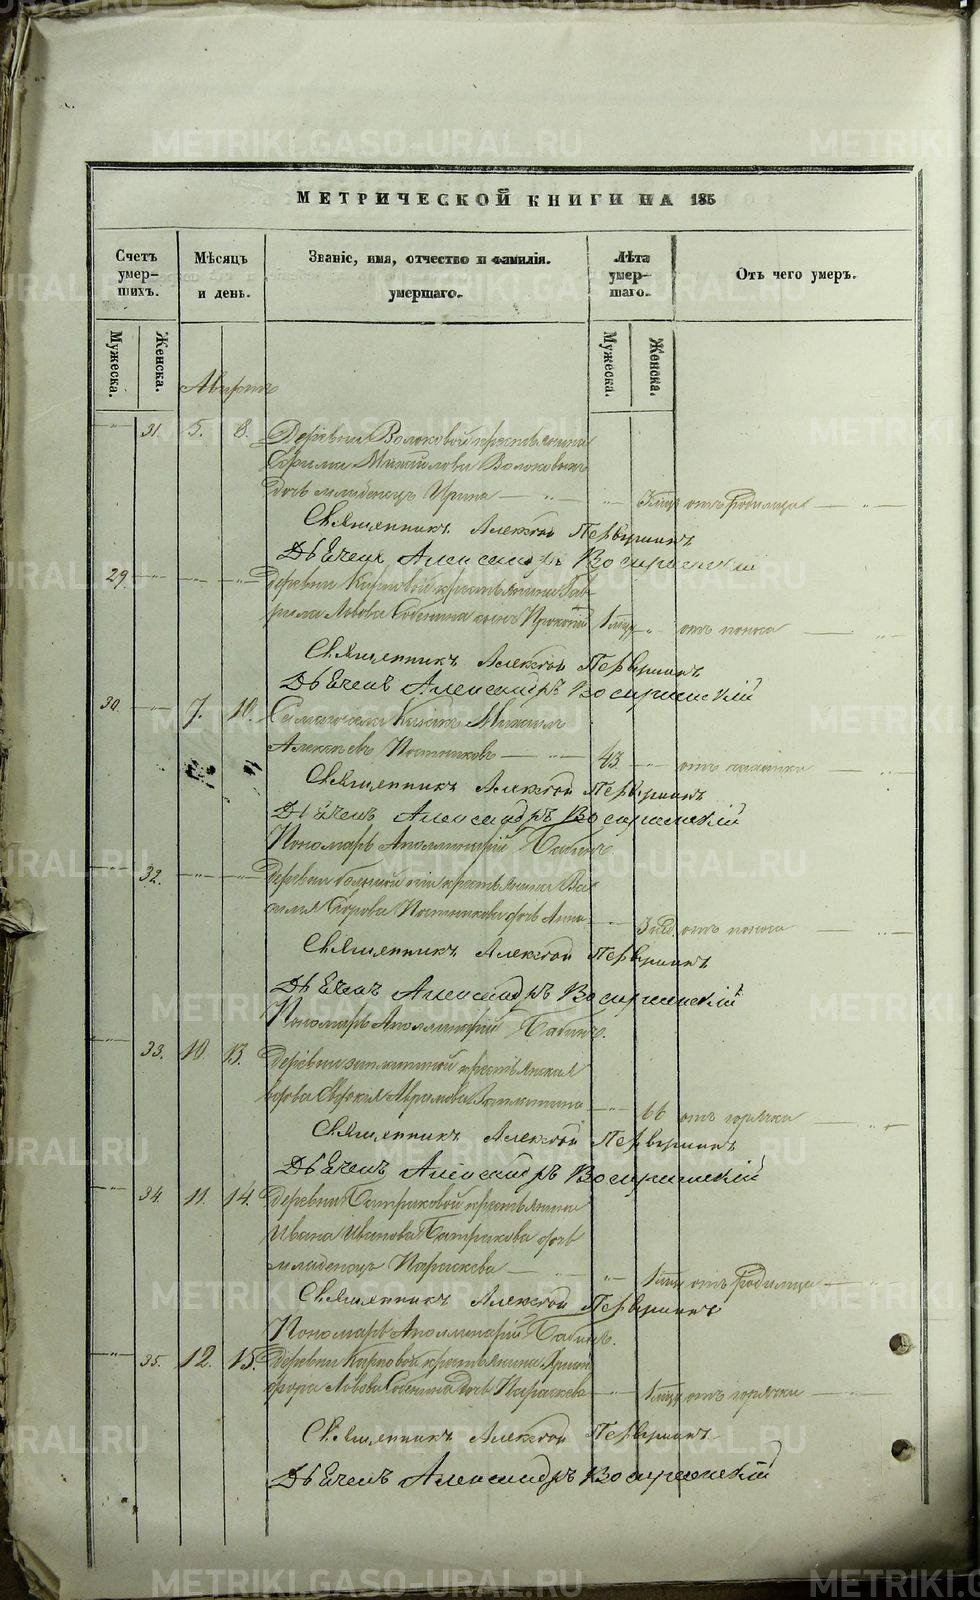 МЕТРИЧЕСКОЙ КНИГИ НА 185
Счетъ умер-шихъ.
Мѣсяцъ и день.
Званіе, имя, отчество и фамилія. умершаго.
Лѣта умер-шаго.
Отъ чего умеръ.
Мужеска. Женска. Мужеска. Женска.
Августъ
31. 5. 8. Деревни Волоковой крестьянина
Михайлова Волокова
дочь младенецъ Ирина 3 мцъ отъ родимца
Священникъ Алексѣй Первушинъ
Дьячекъ Александръ Воскресенскій
29 Деревни Карповой крестьянина Гав-
рила Львова Собенина сынъ Прокопій 1 мцъ отъ поноса
Священникъ Алексѣй Первушинъ
Дьячекъ Александръ Воскресенскій
30. 7. 10. Михаилъ
Алексѣевъ Постниковъ 43 отъ
Священникъ Алексѣй Первушинъ
Дьячекъ Александръ Воскресенскій
Пономарь Аполлинарій Бабинъ.
32. Деревни крестьянина Ва-
силья Егорова Постникова дочь Анна 3 нед. отъ поноса
Священникъ Алексѣй Первушинъ
Дьячекъ Александръ Воскресенскій
Пономарь Аполлинарій Бабинъ.
33. 10. 13. Деревни крестьянская
вдова Аврамова 66 отъ горячки
Священникъ Алексѣй Первушинъ
Дьячекъ Александръ Воскресенскій
34. 11. 14. Деревни Батраковой крестьянина
Ивана Иванова Батракова дочь
младенецъ Параскева 1 мцъ отъ родимца
Священникъ Алексѣй Первушинъ
Пономарь Аполлинарій Бабинъ.
35. 12. 15. Деревни Карповой крестьянина
Львова Собенина дочь Параскева 1 мцъ отъ горячки
Священникъ Алексѣй Первушинъ
Дьячекъ Александръ Воскресенскій
METRIKI.GASO-URAL.RU